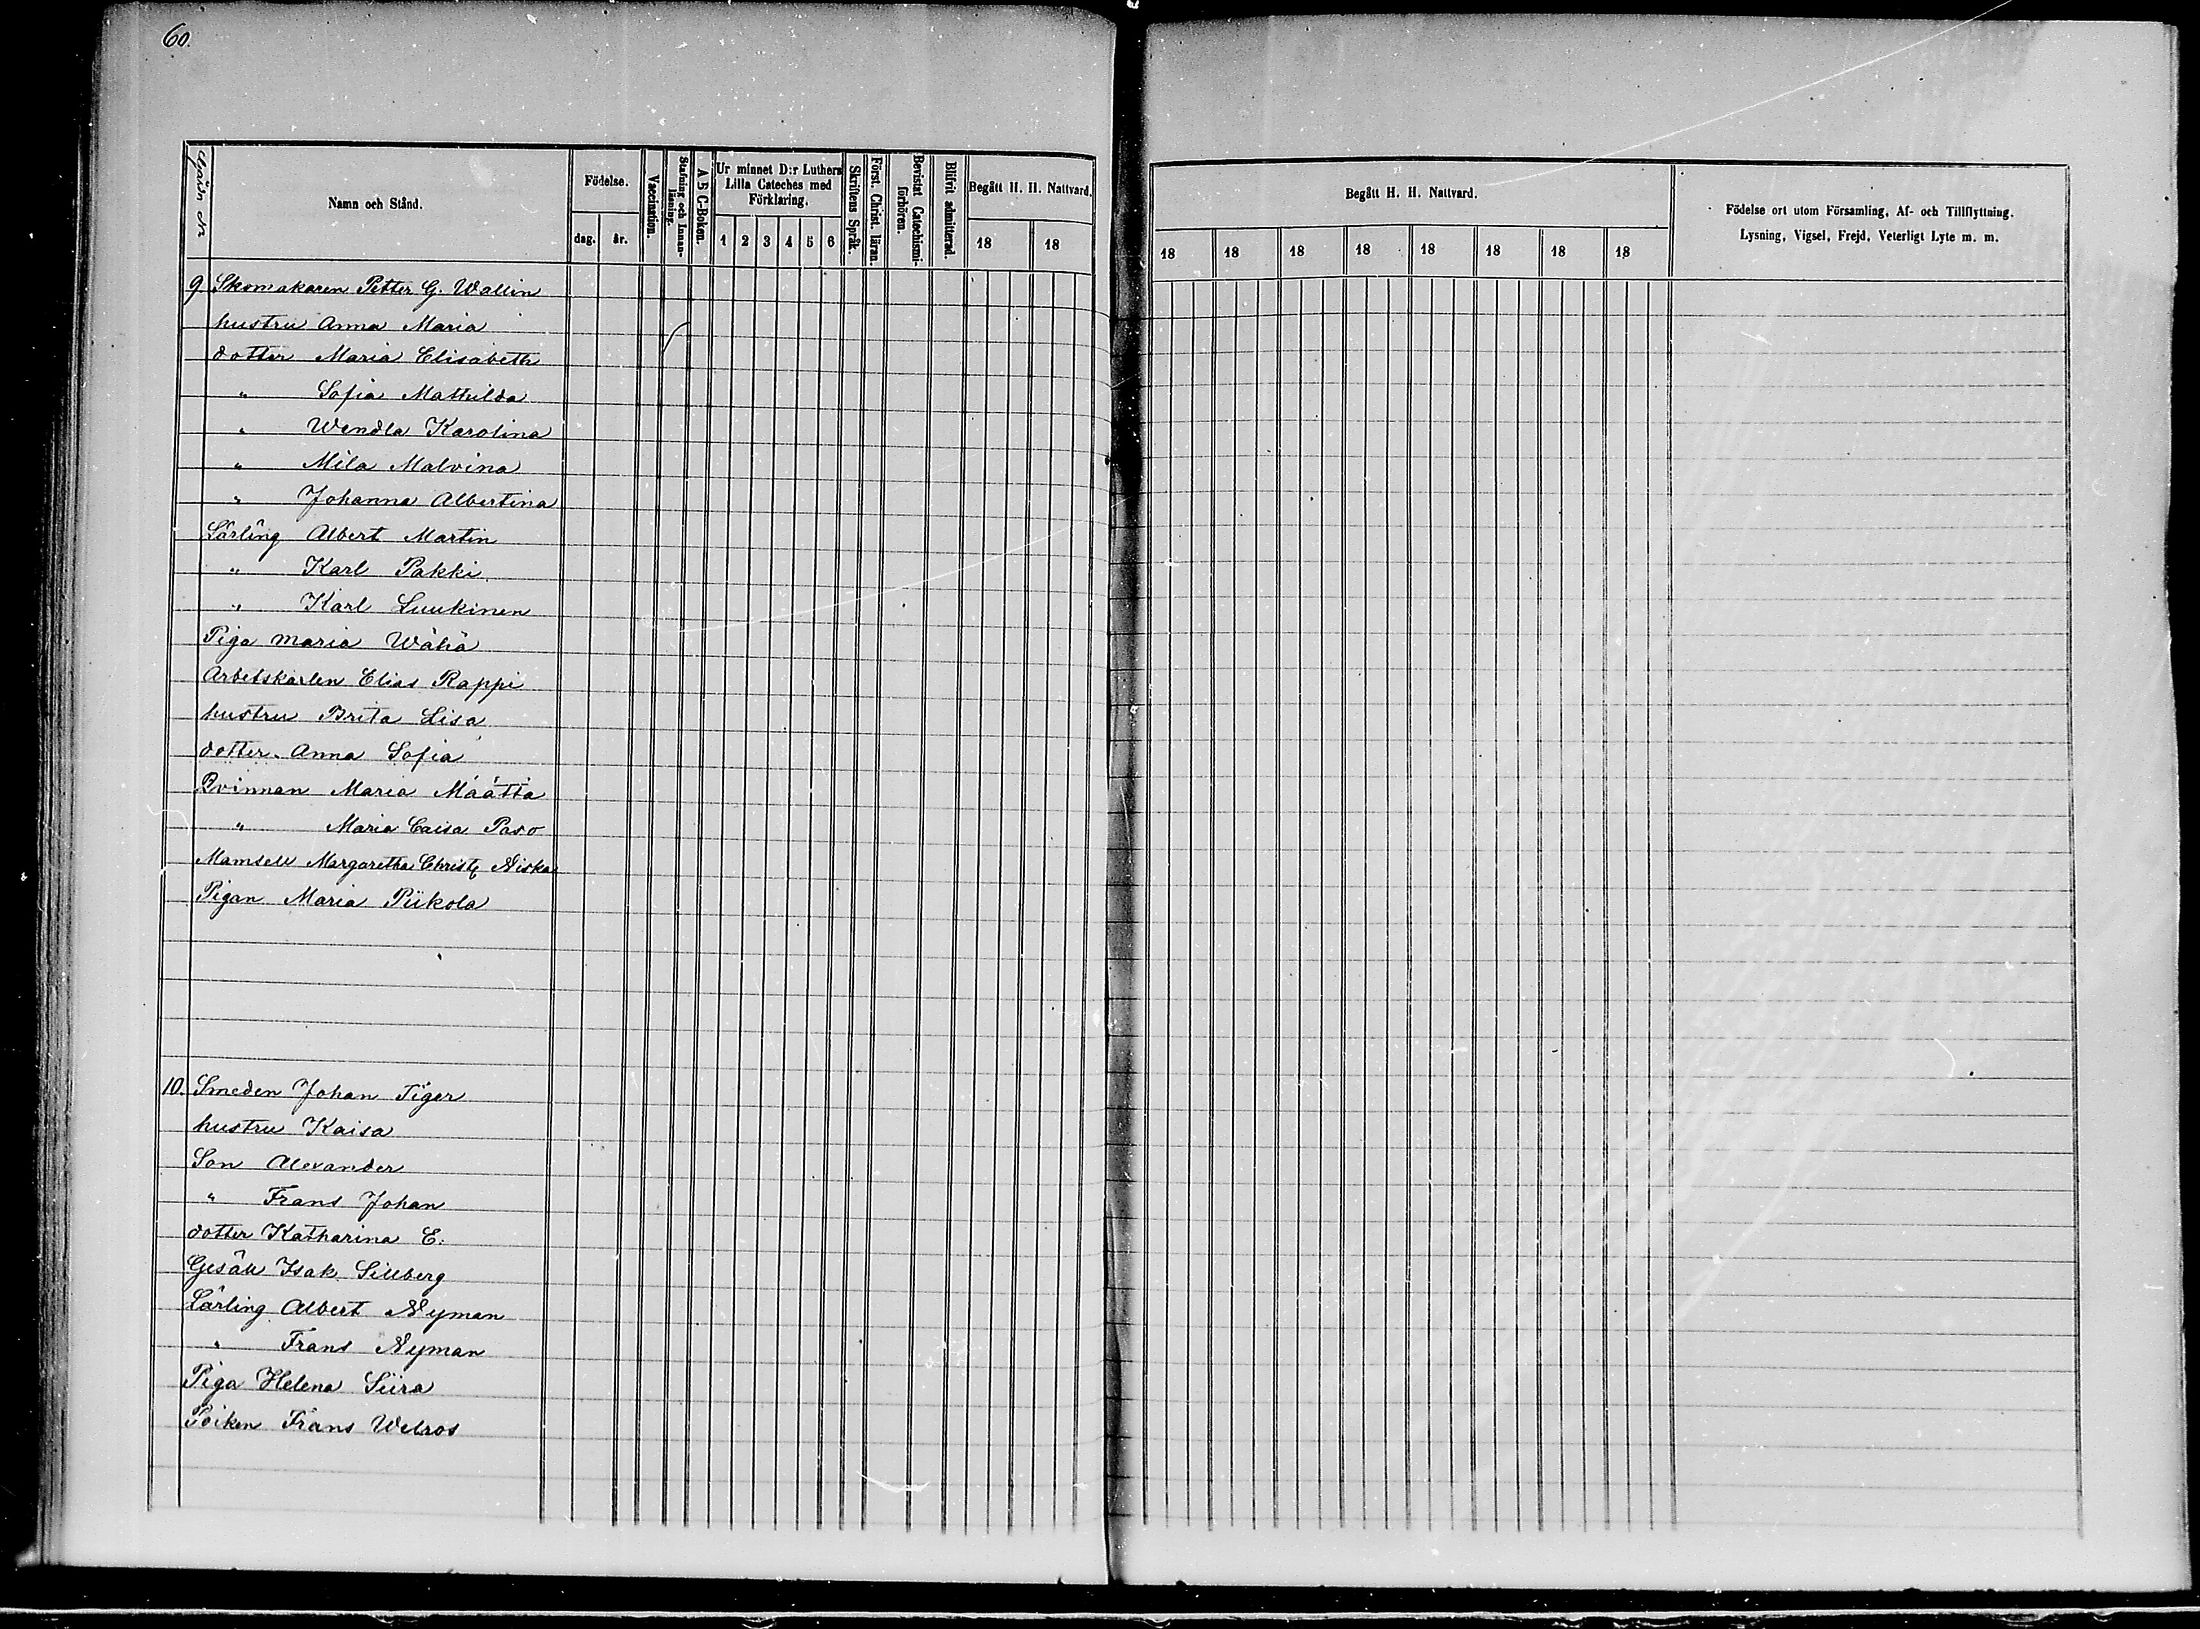 60.
Gården №
Namn och Stånd.
Födelse.
dag.
år.
Vaccination.
Stafning och Innanläsning.
A B C-Boken.
Ur minnet D:r Luthers Lilla Cateches med Förklaring.
1 2 3 4 5 6
Skriftens Språk.
Först. Christ. läran.
Bevistat Catechismiförhören.
Blifvit admitterad.
Begått H. H. Nattvard.
18 18
Begått H. H. Nattvard.
18 18 18 18 18 18 18 18
Födelse ort utom Församling, Af- och Tillflyttning.
Lysning, Vigsel, Frejd, Veterligt Lyte m. m.
9 Skomakaren Petter G. Wallin
hustru Anna Maria
dotter Maria Elisabeth
" Sofia Mathilda
" Wendla Karolina
" Mila Malvina
" Johanna Albertina
Lärling Albert Martin
" Karl Pakki
" Karl Luukinen
Piga Maria Wähä
Arbetskarlen Elias Rappi
hustru Brita Lisa
dotter Anna Sofia
Qvinnan Maria Määttä
" Maria Caisa Paso
Mamsell Margaretha Christ. Niska
Pigan Maria Piikola
10. Smeden Johan Tiger
hustru Kaisa
Son Alexander
" Frans Johan
dotter Katharina E.
Gesäll Isak Sillberg
Lärling Albert Nyman
" Frans Nyman
Piga Helena Siira
Poiken Frans Welros